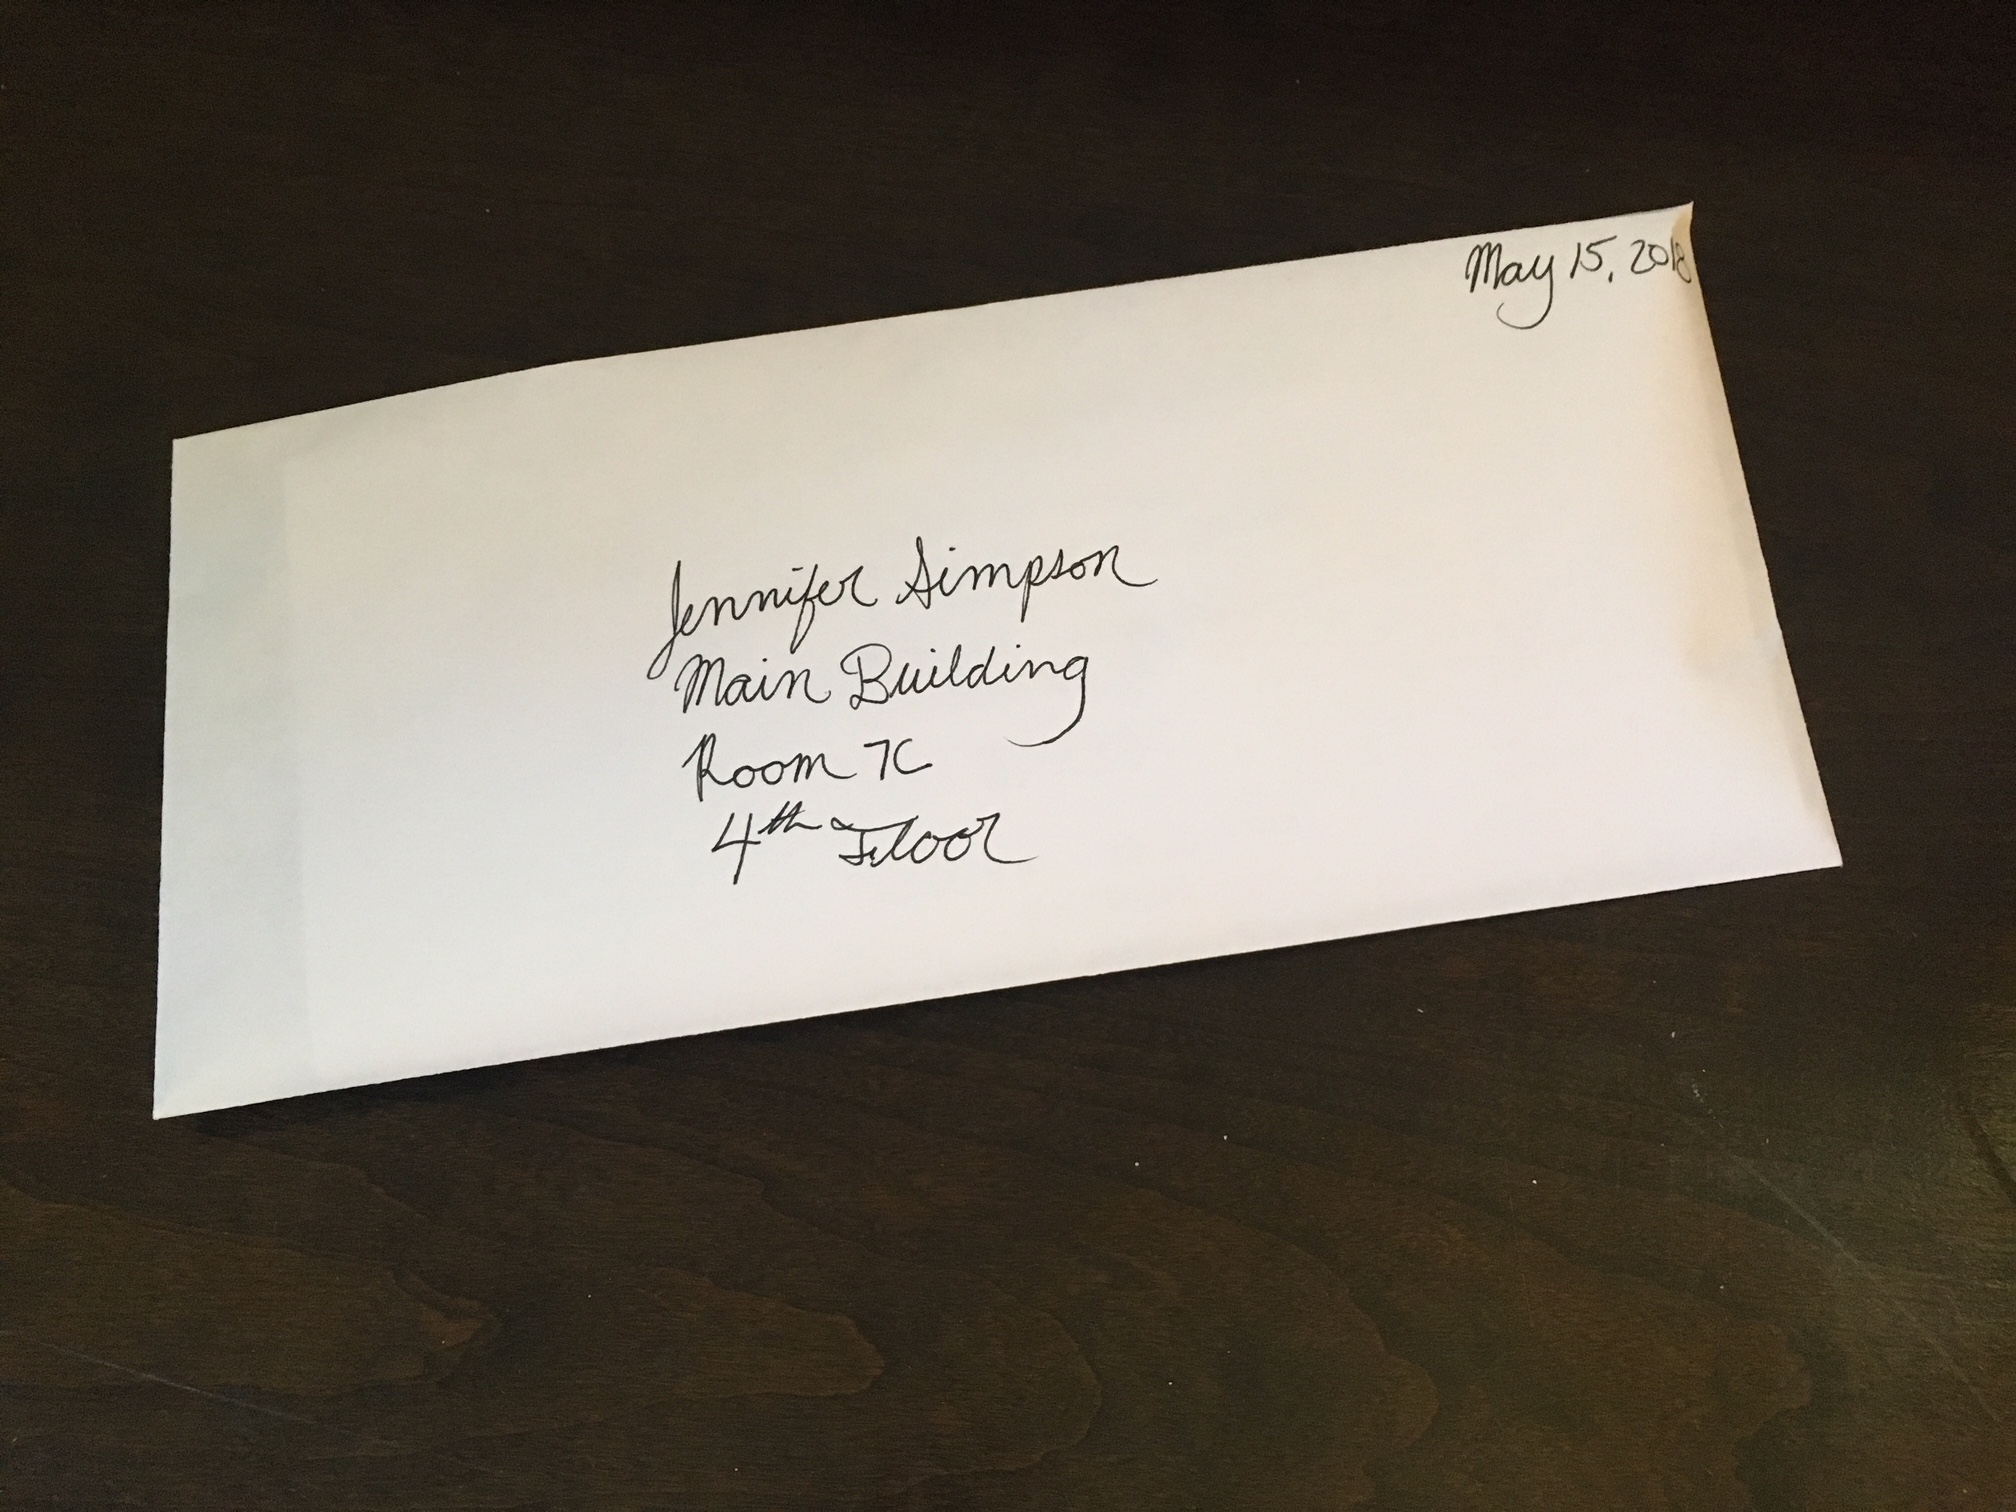 May 15, 2018
Jennifer Simpson
Main Building
Room 7C
4th Floor